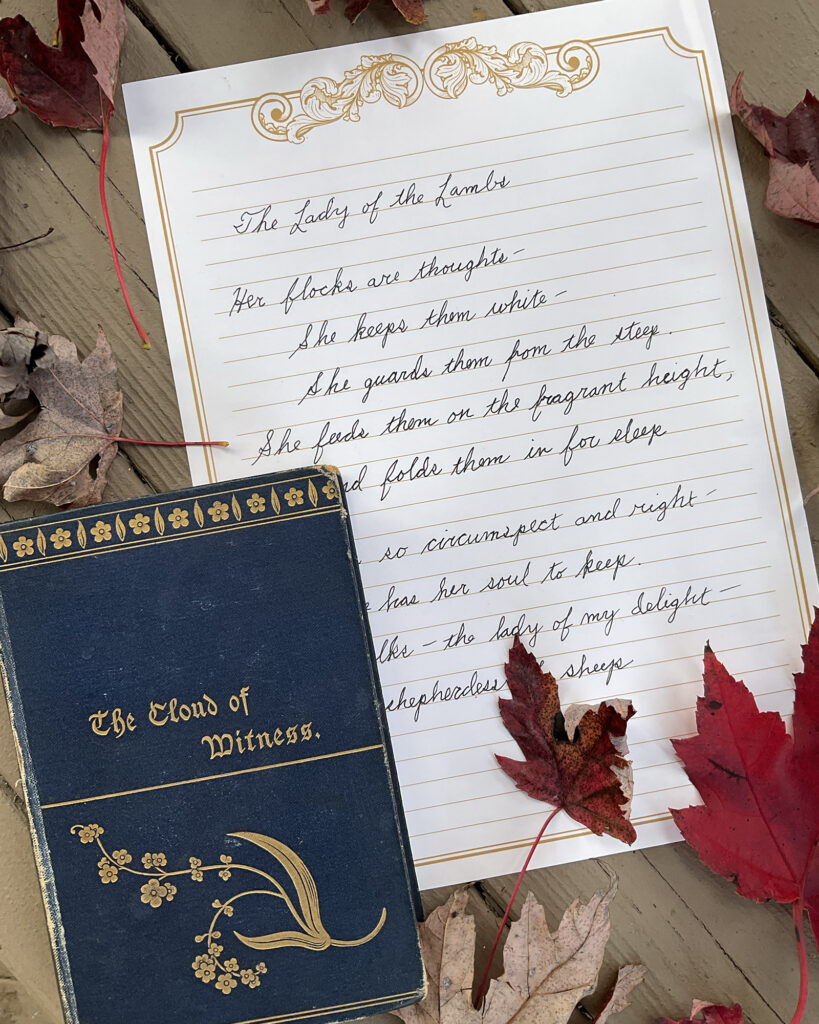 The Lady of the Lambs
Her flocks are thoughts –
She keeps them white –
She guards them from the steep.
She feeds them on the fragrant height,
folds them in for sleep
so circumspect and right –
has her soul to keep.
– the lady of my delight –
shepherdess sheep
The Cloud of
Witness.